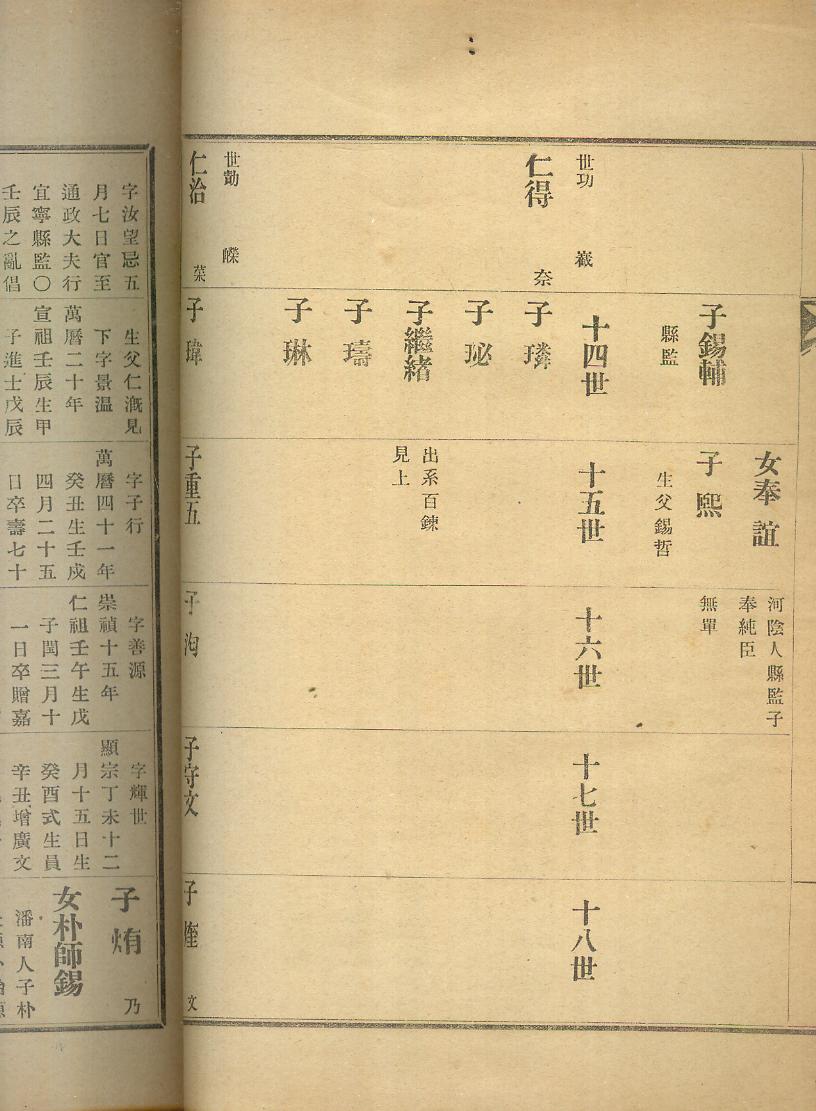 女奉誼
河陰人縣監子
奉純臣
子錫輔
縣監
子熙
生父錫哲
無單
世功
嶻
十四世
十五世
十六世
十七世
十八世
仁得
奈
子璘
子珌
子繼緖
出系百鍊
見上
子璹
子琳
世勣
嶸
仁治
葉
子瑋
子重五
子洵
子守文
子煃
文
字汝望忌五
月七日官至
通政大夫行
宜寧縣監〇
壬辰之亂倡
生父仁漑見
下字景温
萬曆二十年
宣祖壬辰生甲
子進士戊辰
字子行
萬曆四十一年
癸丑生壬戌
四月二十五
日卒壽七十
字善源
崇禎十五年
仁祖壬午生戊
子閏三月十
一日卒贈嘉
字輝世
顯宗丁未十二
月十五日生
癸酉式生員
辛丑增廣文
子烠
乃
女朴師錫
潘南人子朴